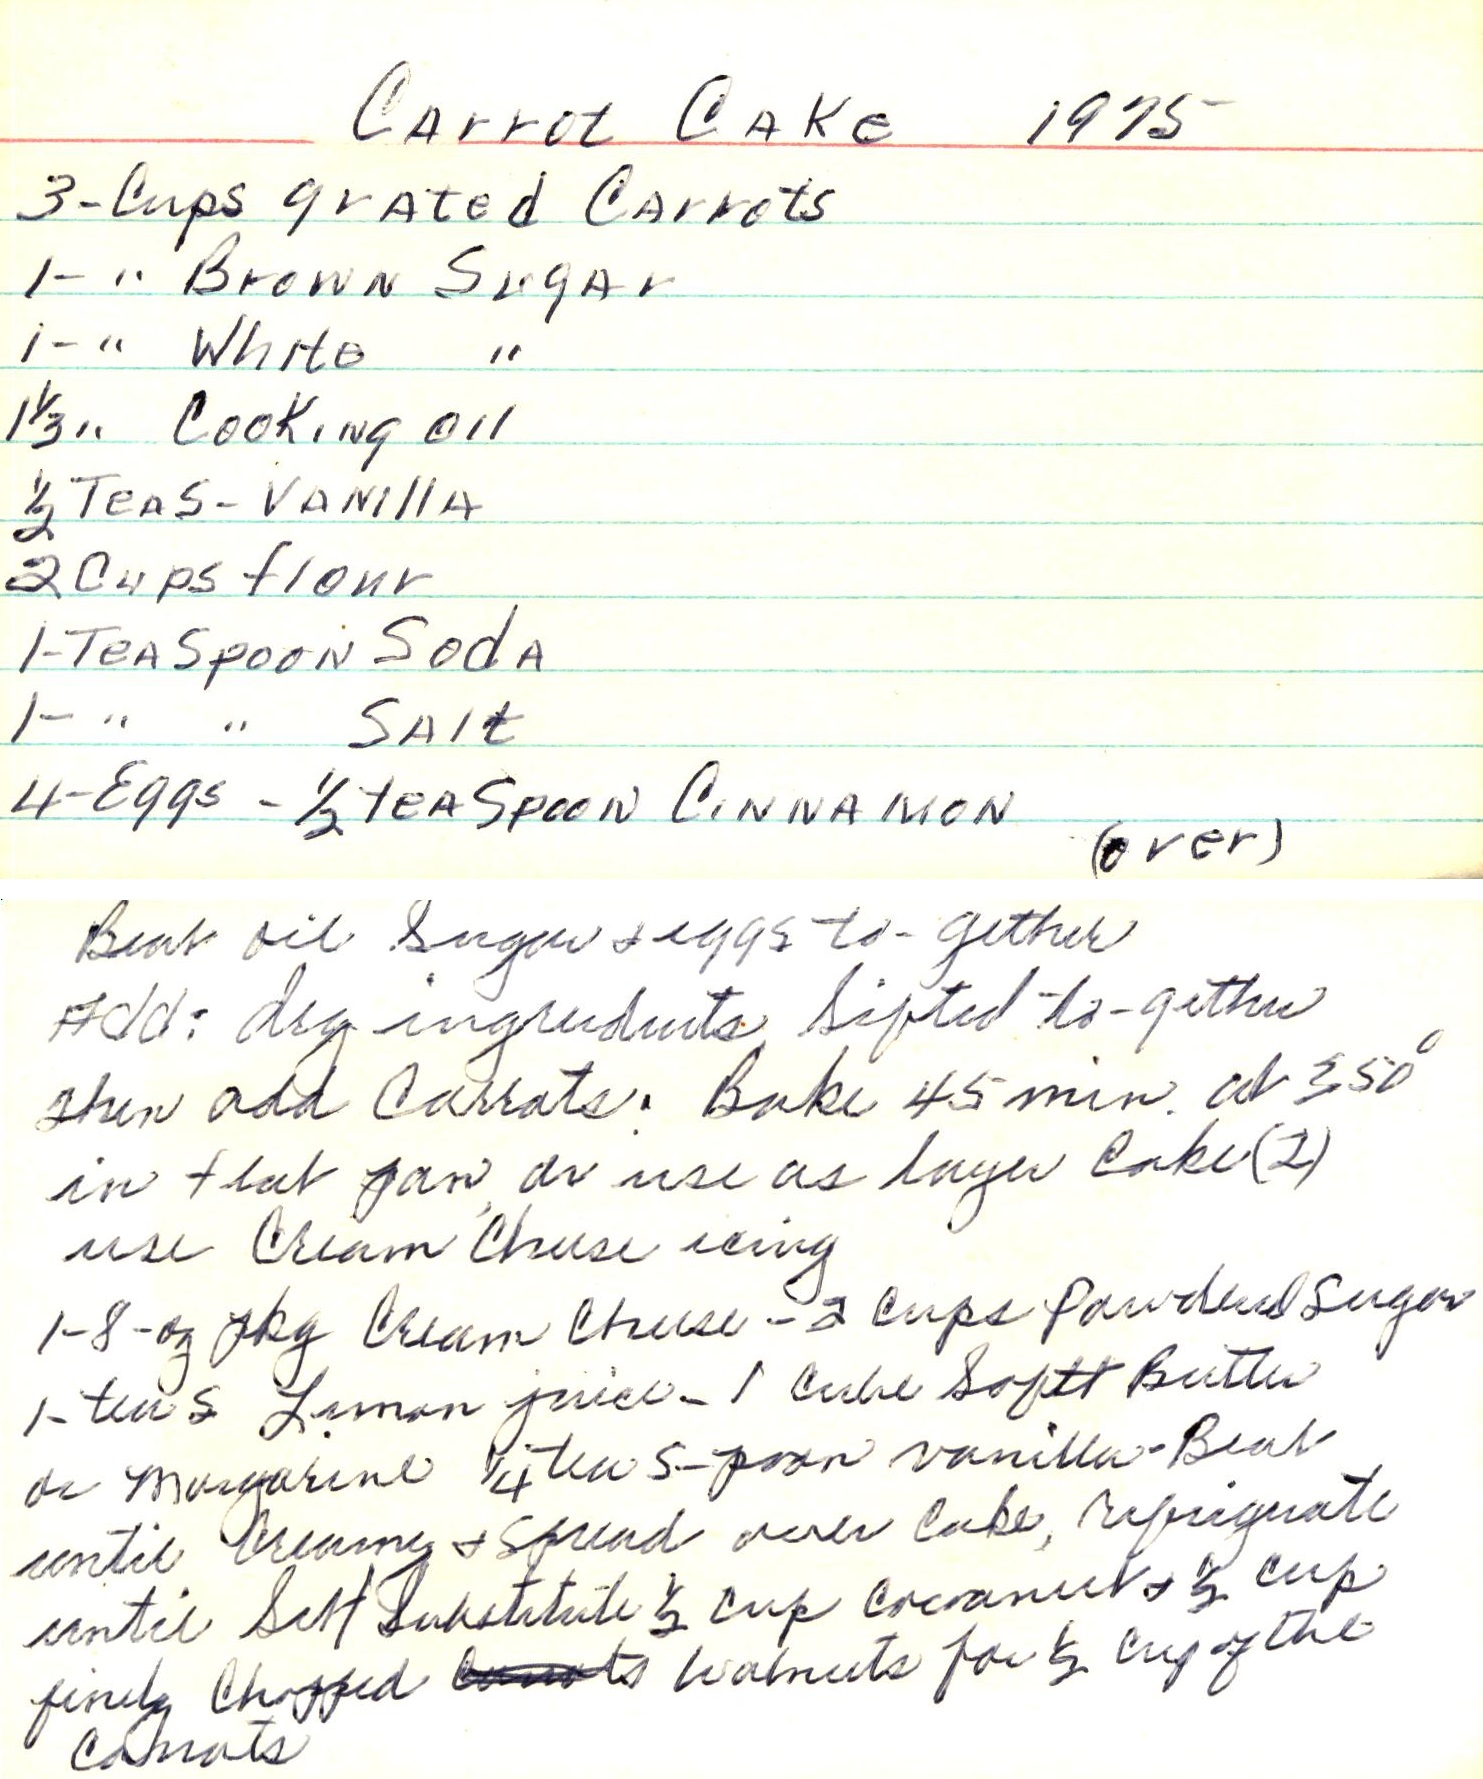 Carrot Cake 1975
3-Cups grated Carrots
1- " Brown Sugar
1- " White "
1 1/3 " Cooking oil
1/2 Teas-Vanilla
2 Cups flour
1-TeaSpoon Soda
1- " " Salt
4-Eggs - 1/2 teaSpoon Cinnamon
(over)
Beat oil Sugar & eggs to-gether
Add: dry ingredients Sifted to-gether
then add Carrots. Bake 45 min. at 350°
in flat pan, or use as layer Cake (2)
use Cream Cheese icing
1-8-oz pkg Cream Cheese - 2 Cups Powdered Sugar
1-teas Lemon juice - 1 Cube Soft Butter
or Margarine 1/4 teas-poon vanilla - Beat
until Creamy & Spread over Cake, refrigerate
until Set/ Substitute 1/2 cup cocoanut & 1/2 cup
finely Chopped walnuts for 1/2 Cup of the
Carrots